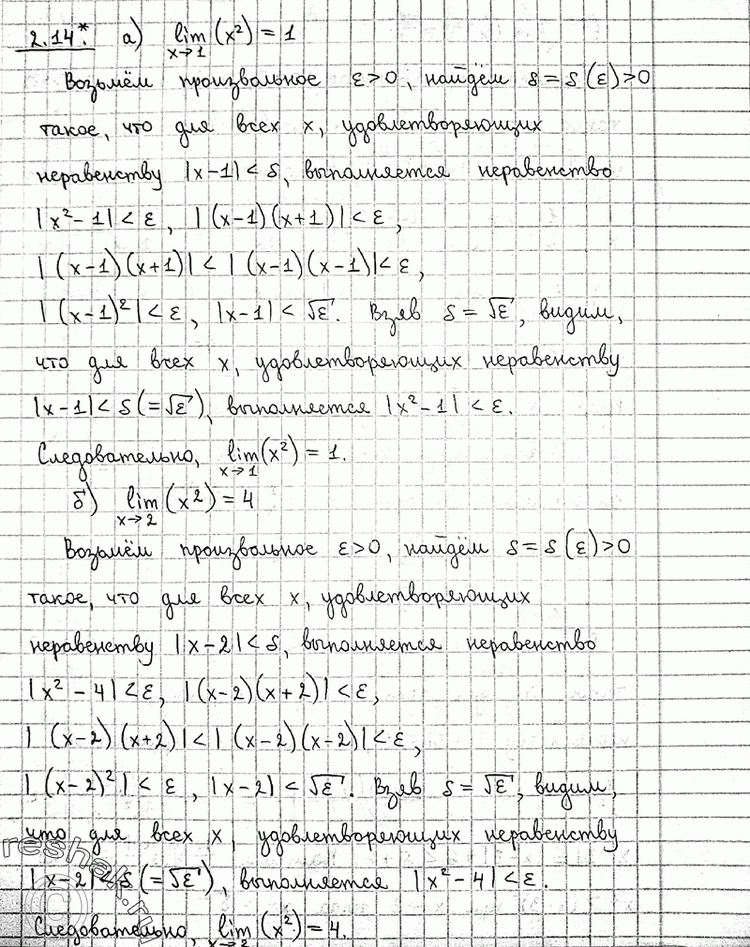 2.14* а) lim (x²) = 1
x→1
Возьмём произвольное ε>0, найдём δ=δ(ε)>0
такое, что для всех x, удовлетворяющих
неравенству |x-1|<δ, выполняется неравенство
|x²-1|<ε, |(x-1)(x+1)|<ε,
|(x-1)(x+1)|<|(x-1)(x-1)|<ε,
|(x-1)²|<ε, |x-1|<√ε. Взяв δ=√ε, видим,
что для всех x, удовлетворяющих неравенству
|x-1|<δ(=√ε), выполняется |x²-1|<ε.
Следовательно, lim (x²) = 1.
x→1
б) lim (x²) = 4
x→2
Возьмём произвольное ε>0, найдём δ=δ(ε)>0
такое, что для всех x, удовлетворяющих
неравенству |x-2|<δ, выполняется неравенство
|x²-4|<ε, |(x-2)(x+2)|<ε,
|(x-2)(x+2)|<|(x-2)(x-2)|<ε,
|(x-2)²|<ε, |x-2|<√ε. Взяв δ=√ε, видим,
что для всех x, удовлетворяющих неравенству
|x-2|<δ(=√ε), выполняется |x²-4|<ε.
Следовательно, lim (x²) = 4.
x→2
reshak.ru